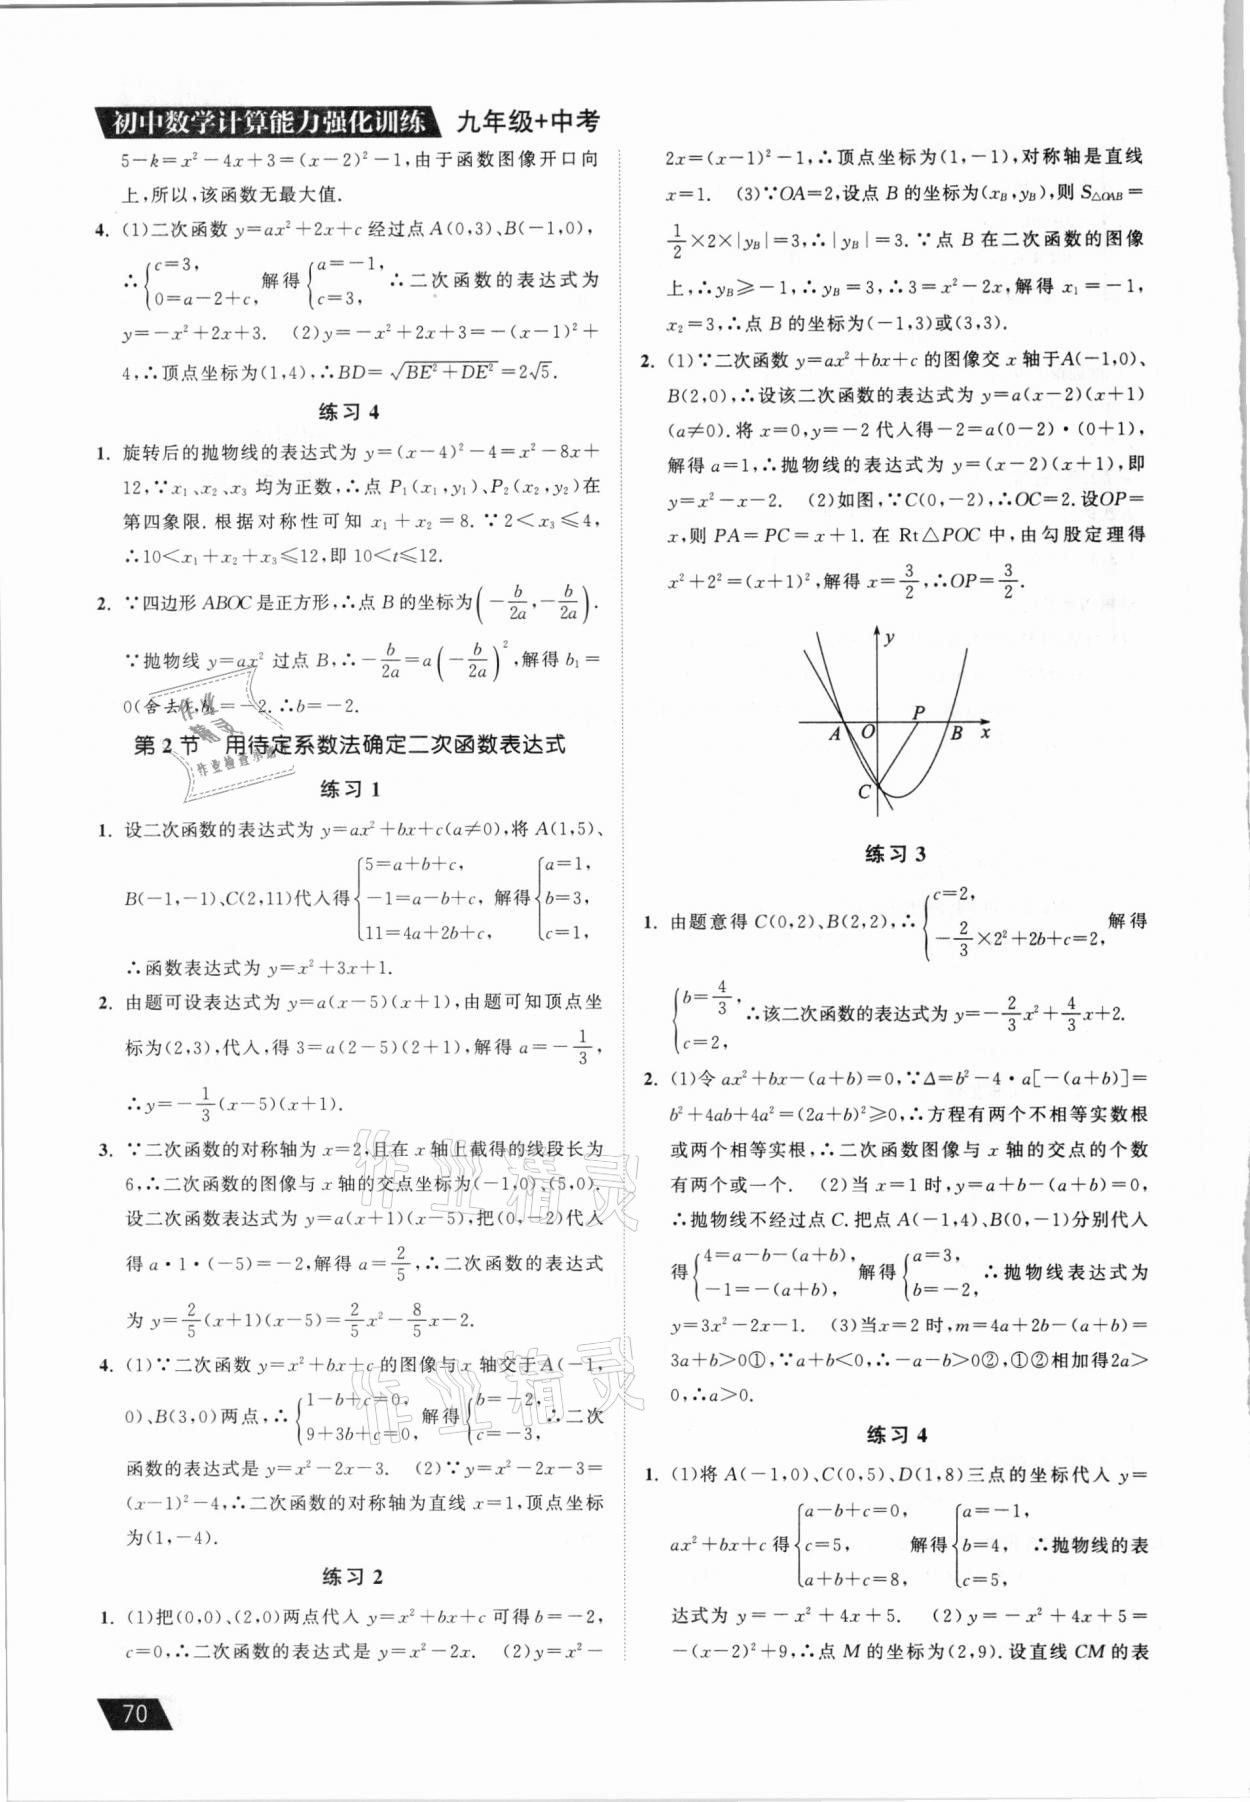 初中数学计算能力强化训练 九年级+中考
5-k=x²-4x+3=(x-2)²-1,由于函数图像开口向
上,所以,该函数无最大值.
4. (1)二次函数 y=ax²+2x+c 经过点 A(0,3)、B(-1,0),
∴{c=3, 0=a-2+c, 解得{a=-1, c=3, ∴二次函数的表达式为
y=-x²+2x+3. (2)y=-x²+2x+3=-(x-1)²+
4,∴顶点坐标为(1,4),∴BD=√(BE²+DE²)=2√5.
练习 4
1. 旋转后的抛物线的表达式为 y=(x-4)²-4=x²-8x+
12,∵x₁、x₂、x₃ 均为正数,∴点 P₁(x₁,y₁)、P₂(x₂,y₂)在
第四象限.根据对称性可知 x₁+x₂=8.∵2<x₃≤4,
∴10<x₁+x₂+x₃≤12,即 10<t≤12.
2. ∵四边形 ABOC 是正方形,∴点 B 的坐标为(-b/2a,-b/2a).
∵抛物线 y=ax² 过点 B,∴-b/2a=a(-b/2a)²,解得 b₁=
0(舍去),b₂=-2.∴b=-2.
第 2 节 用待定系数法确定二次函数表达式
练习 1
1. 设二次函数的表达式为 y=ax²+bx+c(a≠0),将 A(1,5)、
B(-1,-1)、C(2,11)代入得{5=a+b+c, -1=a-b+c, 11=4a+2b+c, 解得{a=1, b=3, c=1,
∴函数表达式为 y=x²+3x+1.
2. 由题可设表达式为 y=a(x-5)(x+1),由题可知顶点坐
标为(2,3),代入,得 3=a(2-5)(2+1),解得 a=-1/3,
∴y=-1/3(x-5)(x+1).
3. ∵二次函数的对称轴为 x=2,且在 x 轴上截得的线段长为
6,∴二次函数的图像与 x 轴的交点坐标为(-1,0)、(5,0).
设二次函数表达式为 y=a(x+1)(x-5),把(0,-2)代入
得 a·1·(-5)=-2,解得 a=2/5,∴二次函数的表达式
为 y=2/5(x+1)(x-5)=2/5x²-8/5x-2.
4. (1)∵二次函数 y=x²+bx+c的图像与 x 轴交于 A(-1,
0)、B(3,0)两点,∴{1-b+c=0, 9+3b+c=0, 解得{b=-2, c=-3, ∴二次
函数的表达式是 y=x²-2x-3. (2)∵y=x²-2x-3=
(x-1)²-4,∴二次函数的对称轴为直线 x=1,顶点坐标
为(1,-4).
练习 2
1. (1)把(0,0)、(2,0)两点代入 y=x²+bx+c 可得 b=-2,
c=0,∴二次函数的表达式是 y=x²-2x. (2)y=x²-
70
2x=(x-1)²-1,∴顶点坐标为(1,-1),对称轴是直线
x=1. (3)∵OA=2,设点 B 的坐标为(x_B,y_B),则 S△OAB=
1/2×2×|y_B|=3,∴|y_B|=3.∵点 B 在二次函数的图像
上,∴y_B≥-1,∴y_B=3,∴3=x²-2x,解得 x₁=-1,
x₂=3,∴点 B 的坐标为(-1,3)或(3,3).
2. (1)∵二次函数 y=ax²+bx+c 的图像交 x 轴于A(-1,0)、
B(2,0),∴设该二次函数的表达式为 y=a(x-2)(x+1)
(a≠0).将 x=0,y=-2 代入得-2=a(0-2)·(0+1),
解得 a=1,∴抛物线的表达式为 y=(x-2)(x+1),即
y=x²-x-2. (2)如图,∵C(0,-2),∴OC=2.设OP=
x,则 PA=PC=x+1.在 Rt△POC 中,由勾股定理得
x²+2²=(x+1)²,解得 x=3/2,∴OP=3/2.
y
P
A O B x
C
练习 3
1. 由题意得 C(0,2)、B(2,2),∴{c=2, -2/3×2²+2b+c=2, 解得
{b=4/3, c=2, ∴该二次函数的表达式为 y=-2/3x²+4/3x+2.
2. (1)令 ax²+bx-(a+b)=0,∵Δ=b²-4·a[-(a+b)]=
b²+4ab+4a²=(2a+b)²≥0,∴方程有两个不相等实数根
或两个相等实根,∴二次函数图像与 x 轴的交点的个数
有两个或一个. (2)当 x=1 时,y=a+b-(a+b)=0,
∴抛物线不经过点 C.把点 A(-1,4)、B(0,-1)分别代入
得{4=a-b-(a+b), -1=-(a+b), 解得{a=3, b=-2, ∴抛物线表达式为
y=3x²-2x-1. (3)当x=2 时,m=4a+2b-(a+b)=
3a+b>0①,∵a+b<0,∴-a-b>0②,①②相加得2a>
0,∴a>0.
练习 4
1. (1)将 A(-1,0)、C(0,5)、D(1,8)三点的坐标代入 y=
ax²+bx+c 得{a-b+c=0, c=5, a+b+c=8, 解得{a=-1, b=4, c=5, ∴抛物线的表
达式为 y=-x²+4x+5. (2)y=-x²+4x+5=
-(x-2)²+9,∴点 M 的坐标为(2,9).设直线 CM 的表
作业精灵
作业精灵
作业精灵